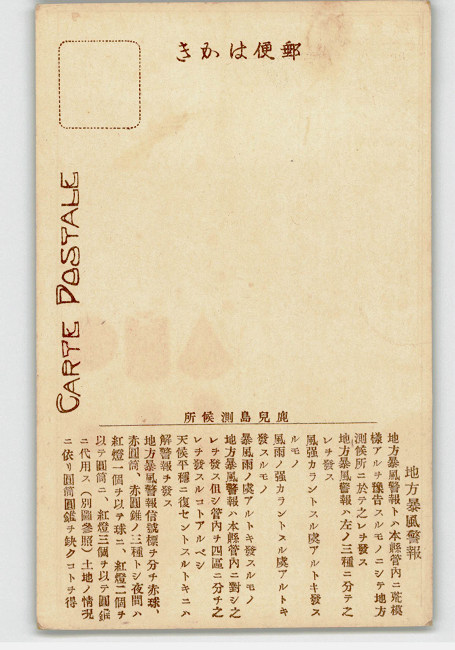 きかは便郵
CARTE POSTALE
鹿兒島測候所
地方暴風警報
地方暴風警報トハ本縣管內ニ荒模
樣アルヲ豫吿スルモノニシテ地方
測候所ニ於テ之レヲ發ス
地方暴風警報ハ左ノ三種ニ分テ之
レヲ發ス
風强カラントスル虞アルトキ發ス
ルモノ
風雨ノ强カラントスル虞アルトキ
發スルモノ
暴風雨ノ虞アルトキ發スルモノ
地方暴風警報ハ本縣管內ニ對シ之
レヲ發ス但シ管內ヲ四區ニ分チ之
レヲ發スルコトアルベシ
天候平穩ニ復セントスルトキニハ
解警報ヲ發ス
地方暴風警報信號標ヲ分チ赤球、
赤圓筒、赤圓錐ノ三種トシ夜間ハ
紅燈一個ヲ以テ球ニ、紅燈二個ヲ
以テ圓筒ニ、紅燈三個ヲ以テ圓錐
ニ代用ス(別圖參照)土地ノ情況
ニ依リ圓筒圓錐ヲ缺クコトヲ得